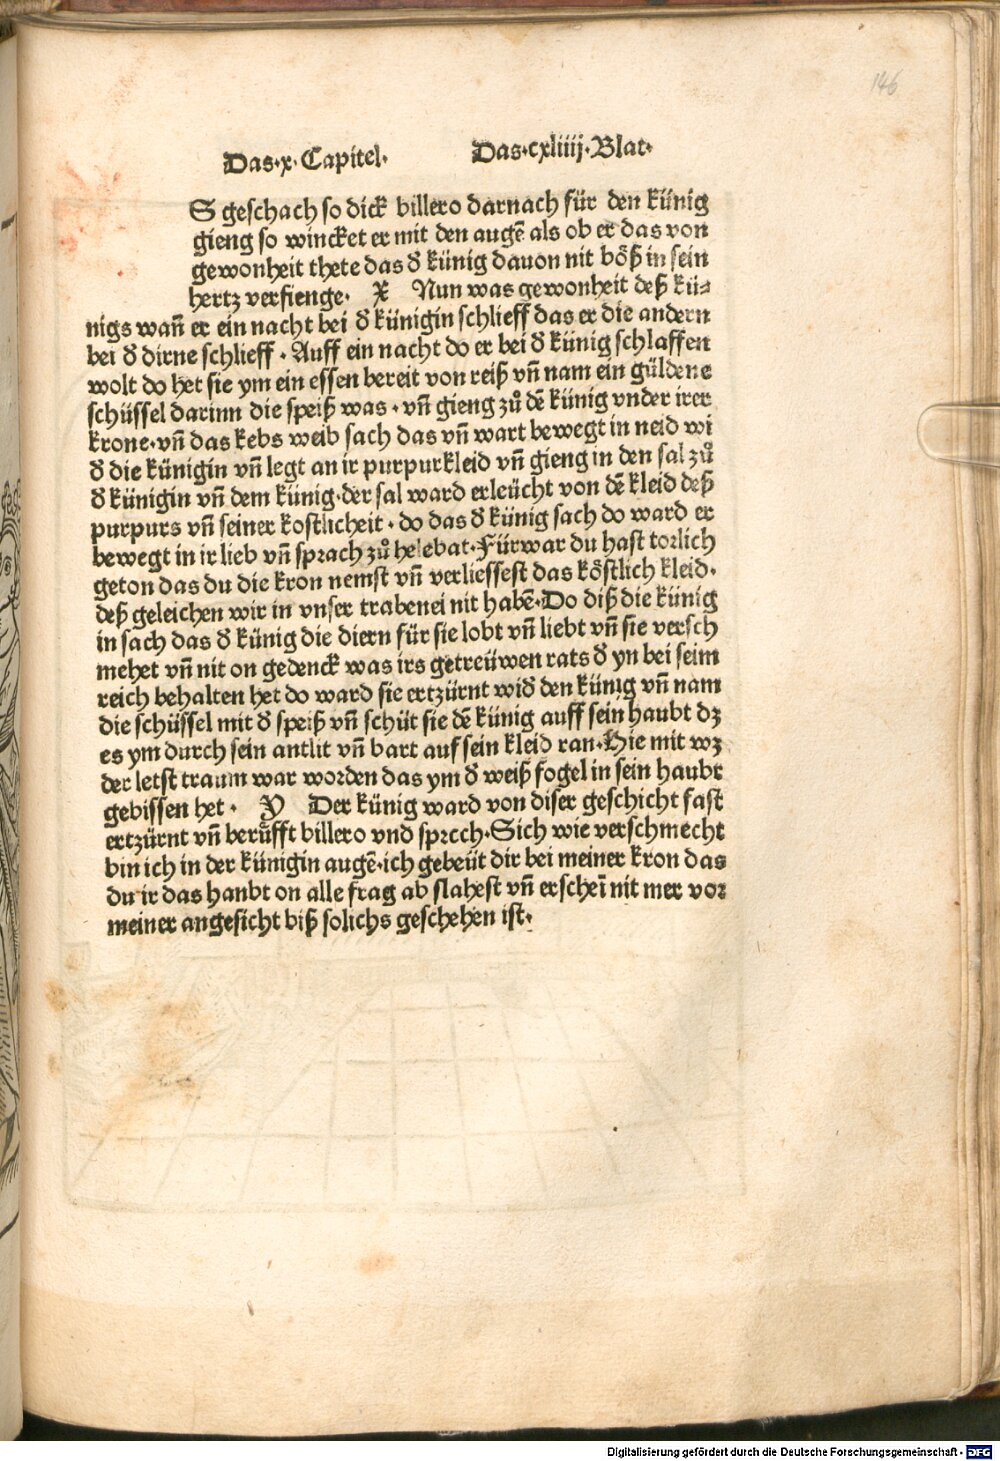 146
Das·x·Capitel· Das·cxliiij·Blat·
S geschach so dick billero darnach für den künig
gieng so wincket er mit den augē als ob er das von
gewonheit thete das d̕ künig dauon nit böß in sein
hertz verfienge· X Nun was gewonheit deß kü⸗
nigs wañ er ein nacht bei d̕ künigin schlieff das er die andern
bei d̕ dirne schlieff · Auff ein nacht do er bei d̕ künig schlaffen
wolt do het sie ym ein essen bereit von reiß vñ nam ein güldene
schüssel darinn die speiß was · vñ gieng zů dē künig vnder irer
krone·vñ das kebs weib sach das vñ wart bewegt in neid wi
d̕ die künigin vñ legt an ir purpurkleid vñ gieng in den sal zů
d̕ künigin vñ dem künig·der sal ward erleücht von dē kleid deß
purpurs vñ seiner kostlicheit · do das d̕ künig sach do ward er
bewegt in ir lieb vñ sprach zů helebat·Fürwar du hast torlich
geton das du die kron nemst vñ verliessest das köstlich kleid·
deß geleichen wir in vnser trabenei nit habē·Do diß die künig
in sach das d̕ künig die diern für sie lobt vñ liebt vñ sie versch
mehet vñ nit on gedenck was irs getreüwen rats d̕ yn bei seim
reich behalten het do ward sie ertzürnt wid̕ den künig vñ nam
die schüssel mit d̕ speiß vñ schüt sie dē künig auff sein haubt dꝫ
es ym durch sein antlit vñ bart auf sein kleid ran·Hie mit wꝫ
der letst traum war worden das ym d̕ weiß fogel in sein haubt
gebissen het · Y Der künig ward von diser geschicht fast
ertzürnt vñ berůfft billero vnd sprcch·Sich wie verschmecht
bin ich in der künigin augē·ich gebeüt dir bei meiner kron das
du ir das hanbt on alle frag ab slahest vñ erscheī nit mer vor
meiner angesicht biß solichs geschehen ist·
Digitalisierung gefördert durch die Deutsche Forschungsgemeinschaft - DFG